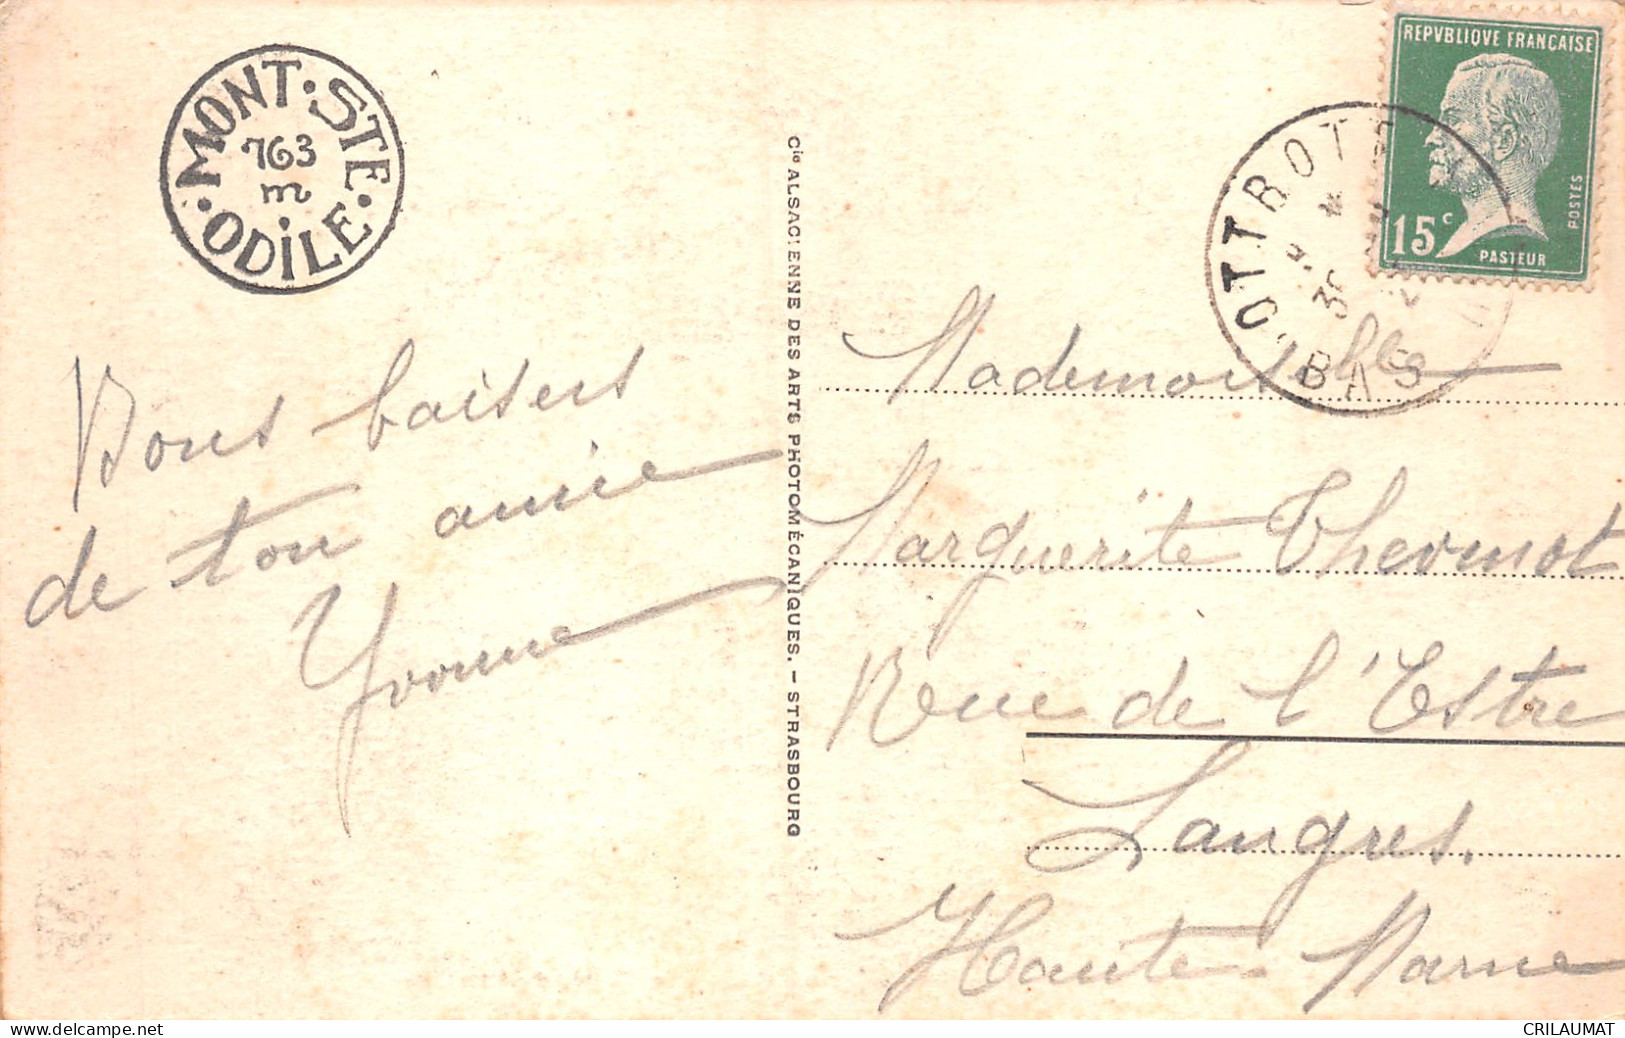 MONT · STE · ODiLE ·
763
m
Bons baisers
de ton amie
Yvonne
Cie ALSACIENNE DES ARTS PHOTOMÉCANIQUES. – STRASBOURG
REPVBLIQVE FRANÇAISE
15c
POSTES
PASTEUR
OTTROTT
BAS
Mademoiselle
Marguerite Thevenot
Rue de l'Estre
Langres.
Haute Marne
CRILAUMAT